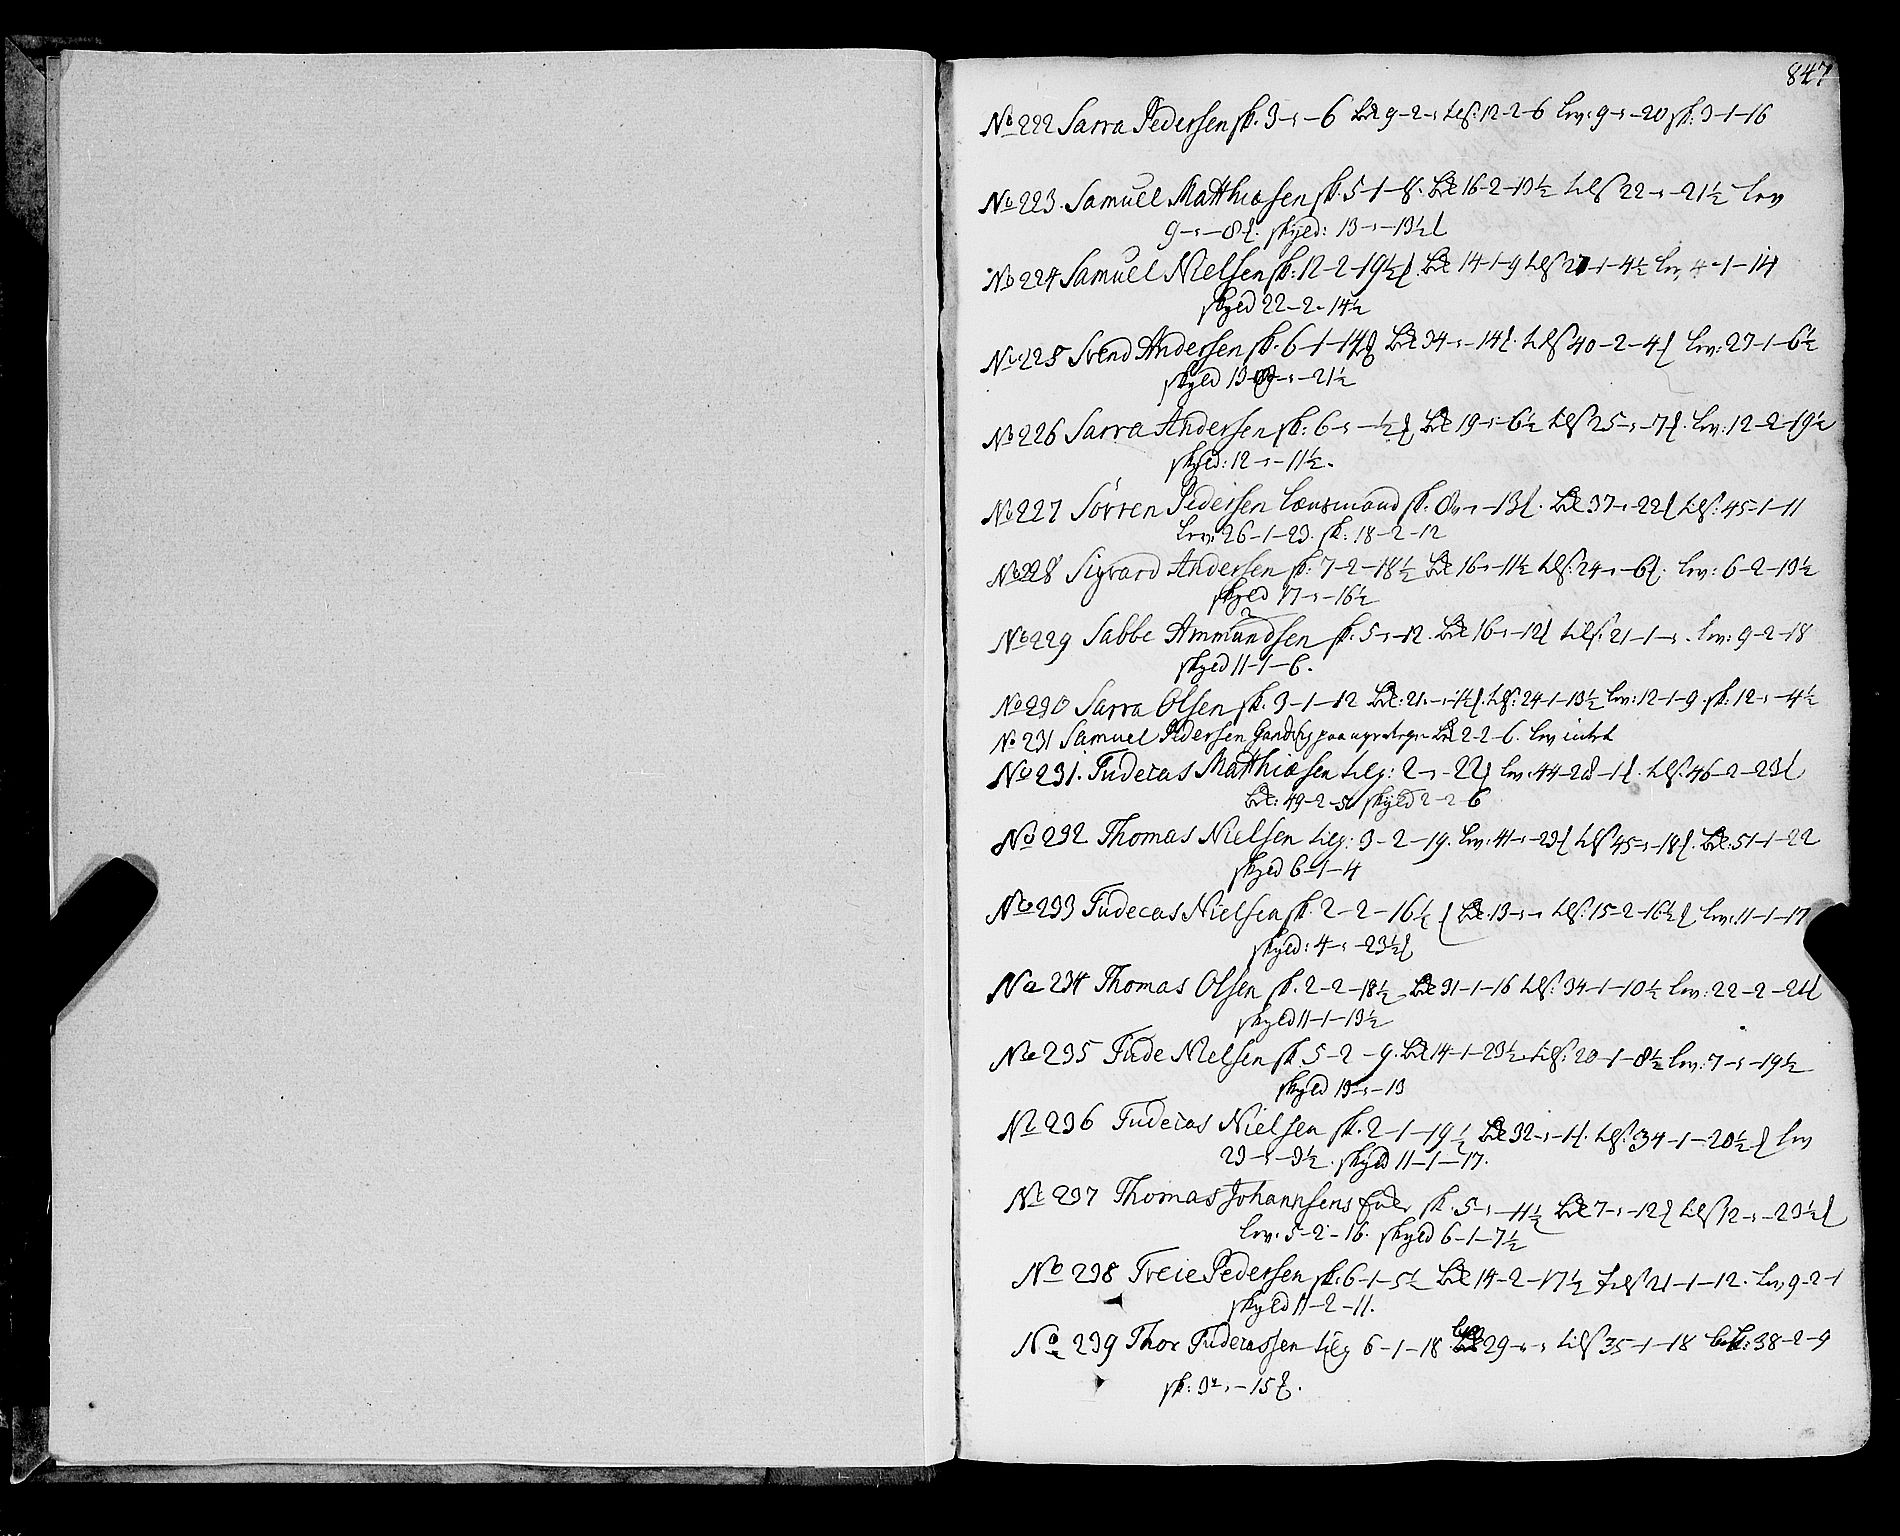 847
No 222 Sarra Pedersen sk. 3-"-6 Bel 9-2-" tils: 12-2-6 lev: 9-"-20 sk: 3-1-16
No 223. Samuel Matthiæsen sk. 5-1-8. Bel 16-2-13½ tils 22-"-21½ lev
9-"-8 skyld: 13-"-13½
No 224 Samuel Nielsen sk: 12-2-19½ Bel 14-1-9 tils 27-1-4½ lev 4-1-14
skyld 22-2-14½
No 225 Svend Andersen sk. 6-1-14 Bel 34-"-14 tils 40-2-4 lev: 27-1-6½
skyld 13-"-21½
No 226 Sarra Andersen sk: 6-"-½ Bel 19-"-6½ tils 25-"-7. lev: 12-2-19½
skyld: 12-"-11½.
No 227 Sörren Pedersen Lænsmand sk. 8-"-13. Bel 37-"-22 tils: 45-1-11
lev: 26-1-23. sk: 18-2-12
No 228 Sigvard Andersen sk: 7-2-18½ Bel 16-"-11½ tils: 24-"-6. lev: 6-2-13½
skyld 17-"-16½
No 229 Sabbe Ammundsen sk. 5-"-12. Bel 16-"-12 tils: 21-1-". lev: 9-2-18
skyld 11-1-6.
No 230 Sarra Olsen sk. 3-1-12 Bel: 21-"-1½ tils: 24-1-13½ lev: 12-1-9. sk: 12-"-4½
No 231 Samuel Pedersen paa Bel 2-2-6. lev intet
No 231. Tudecas Matthiæsen tilg: 2-"-22 lev: 44-2-1. tils: 46-2-23
Bel: 49-2-5 skyld 2-2-6
No 232 Thomas Nielsen tilg: 3-2-19. lev: 41-"-23 tils 45-"-18. Bel: 51-1-22
skyld 6-1-4
No 233 Tudecas Nielsen sk. 2-2-16½ Bel 13-"-" tils: 15-2-16½ lev: 11-1-17
skyld: 4-"-23½
No 234 Thomas Olsen sk. 2-2-18½ Bel 31-1-16 tils: 34-1-10½ lev: 22-2-21
skyld 11-1-13½
No 235 Tude Nielsen sk. 5-2-9. Bel 14-1-23½ tils: 20-1-8½ lev: 7-"-19½
skyld 13-"-13
No 236 Tudecas Nielsen sk. 2-1-19½ Bel 32-"-1. tils: 34-1-20½ lev
23-"-3½ skyld 11-1-17.
No 237 Thomas Johannsens Enke sk. 5-"-11½ Bel 7-"-12 tils 12-"-23½
lev. 5-2-16. skyld 6-1-7½
No 238 Treie Pedersen sk: 6-1-5½ Bel 14-2-17½ tils 21-1-12. lev 9-2-1
skyld 11-2-11.
No 239 Thor Tudecassen tilg 6-1-18 lev 29-"-" tils 35-1-18 Bel: 38-2-9
sk: 3-"-15.